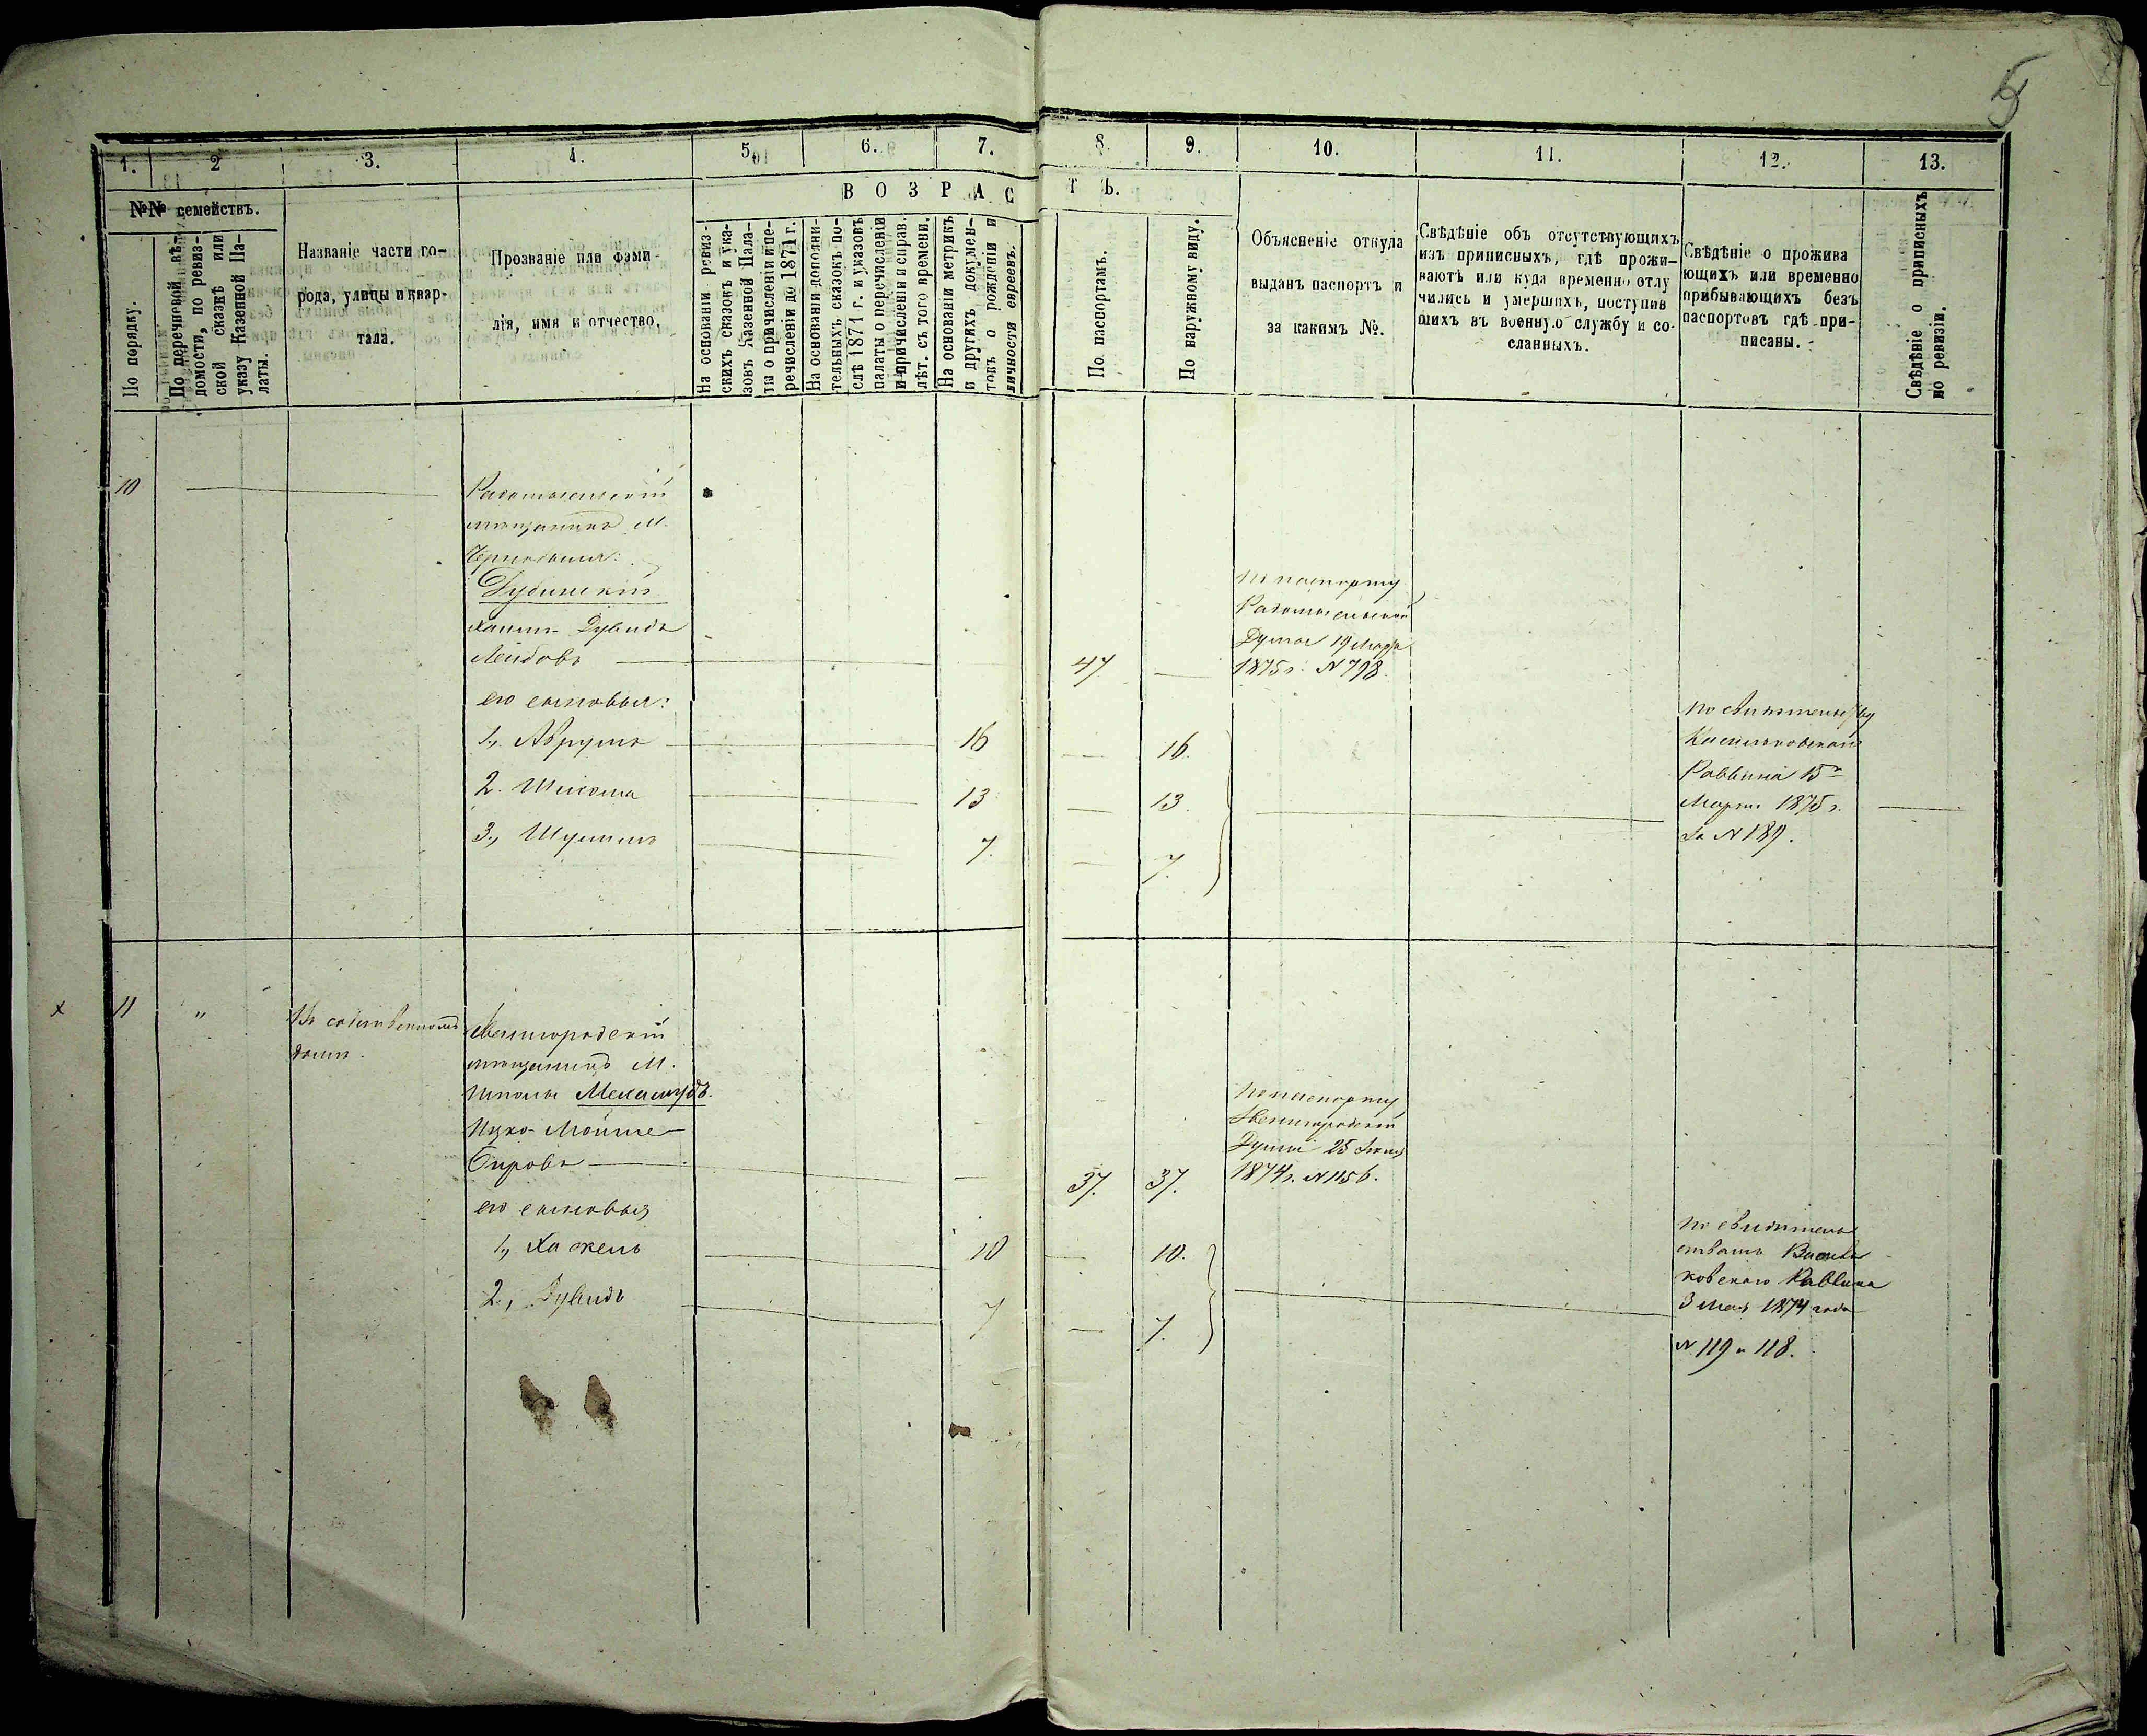 5
1.
2
3.
4.
5.
6.
7.
8.
9.
10.
11.
12.
13.
№№ семействъ.
ВОЗРАСТЪ.
По порядку.
По перечневой вѣ-
домости, по ревиз-
ской сказкѣ или
указу Казенной Па-
латы.
Названіе части го-
рода, улицы и квар-
тала.
Прозваніе или фами-
лія, имя и отчество.
На основаніи ревиз-
скихъ сказокъ и ука-
зовъ Казенной Пала-
ты о причисленіи и пе-
речисленіи до 1871 г.
На основаніи дополни-
тельныхъ сказокъ по-
слѣ 1871 г. и указовъ
палаты о перечисленіи
и причисленіи и справ.
лѣт. съ того времени.
На основаніи метрикъ
и другихъ докумен-
товъ о рожденіи и
личности евреевъ.
По паспортамъ.
По наружному виду.
Объясненіе откуда
выданъ паспортъ и
за какимъ №.
Свѣдѣніе объ отсутствующихъ
изъ приписныхъ, гдѣ прожи-
ваютъ или куда временно отлу
чились и умершихъ, поступив
шихъ въ военную службу и со-
сланныхъ.
Свѣдѣніе о прожива
ющихъ или временно
прибывающихъ безъ
паспортовъ гдѣ при-
писаны.
Свѣдѣніе о приписныхъ
по ревизіи.
10
Радомысльскій
мѣщанинъ М.
Чернобыля:
Дубинскій
Хаимъ-Дувидъ
Лейбовъ 47
по паспорту
Радомысльской
Думы 19 Марта
1875 г. N 798.
его сыновья:
1., Аврумъ 16 16
2. 13 13
3., Шулимъ 7. 7.
по свидѣтельству
Васильковскаго
Раввина 15
Марта 1875 г.
за N 189.
х 11 "
Въ собственномъ
домѣ.
Звенигородскій
мѣщанинъ М.
Шполы
Ицко-Мойше
Бировъ 37. 37.
по паспорту
Звенигородской
Думы 25
1874 г. N 1156.
его сыновья
1., Хаскель 10 10.
2., Дувидъ 7 7.
по свидѣтель
ствамъ Василь
ковскаго Раввина
3 Мая 1874 года
N 119 и 118.